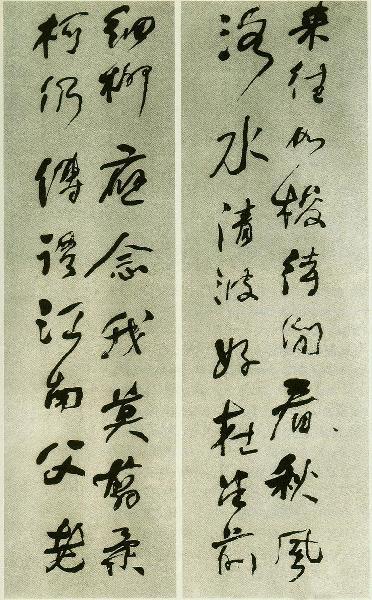 來往如梭待閒看秋風
洛水清波好在堂前
細柳應念我莫翦柔
柯仍傳語江南父老